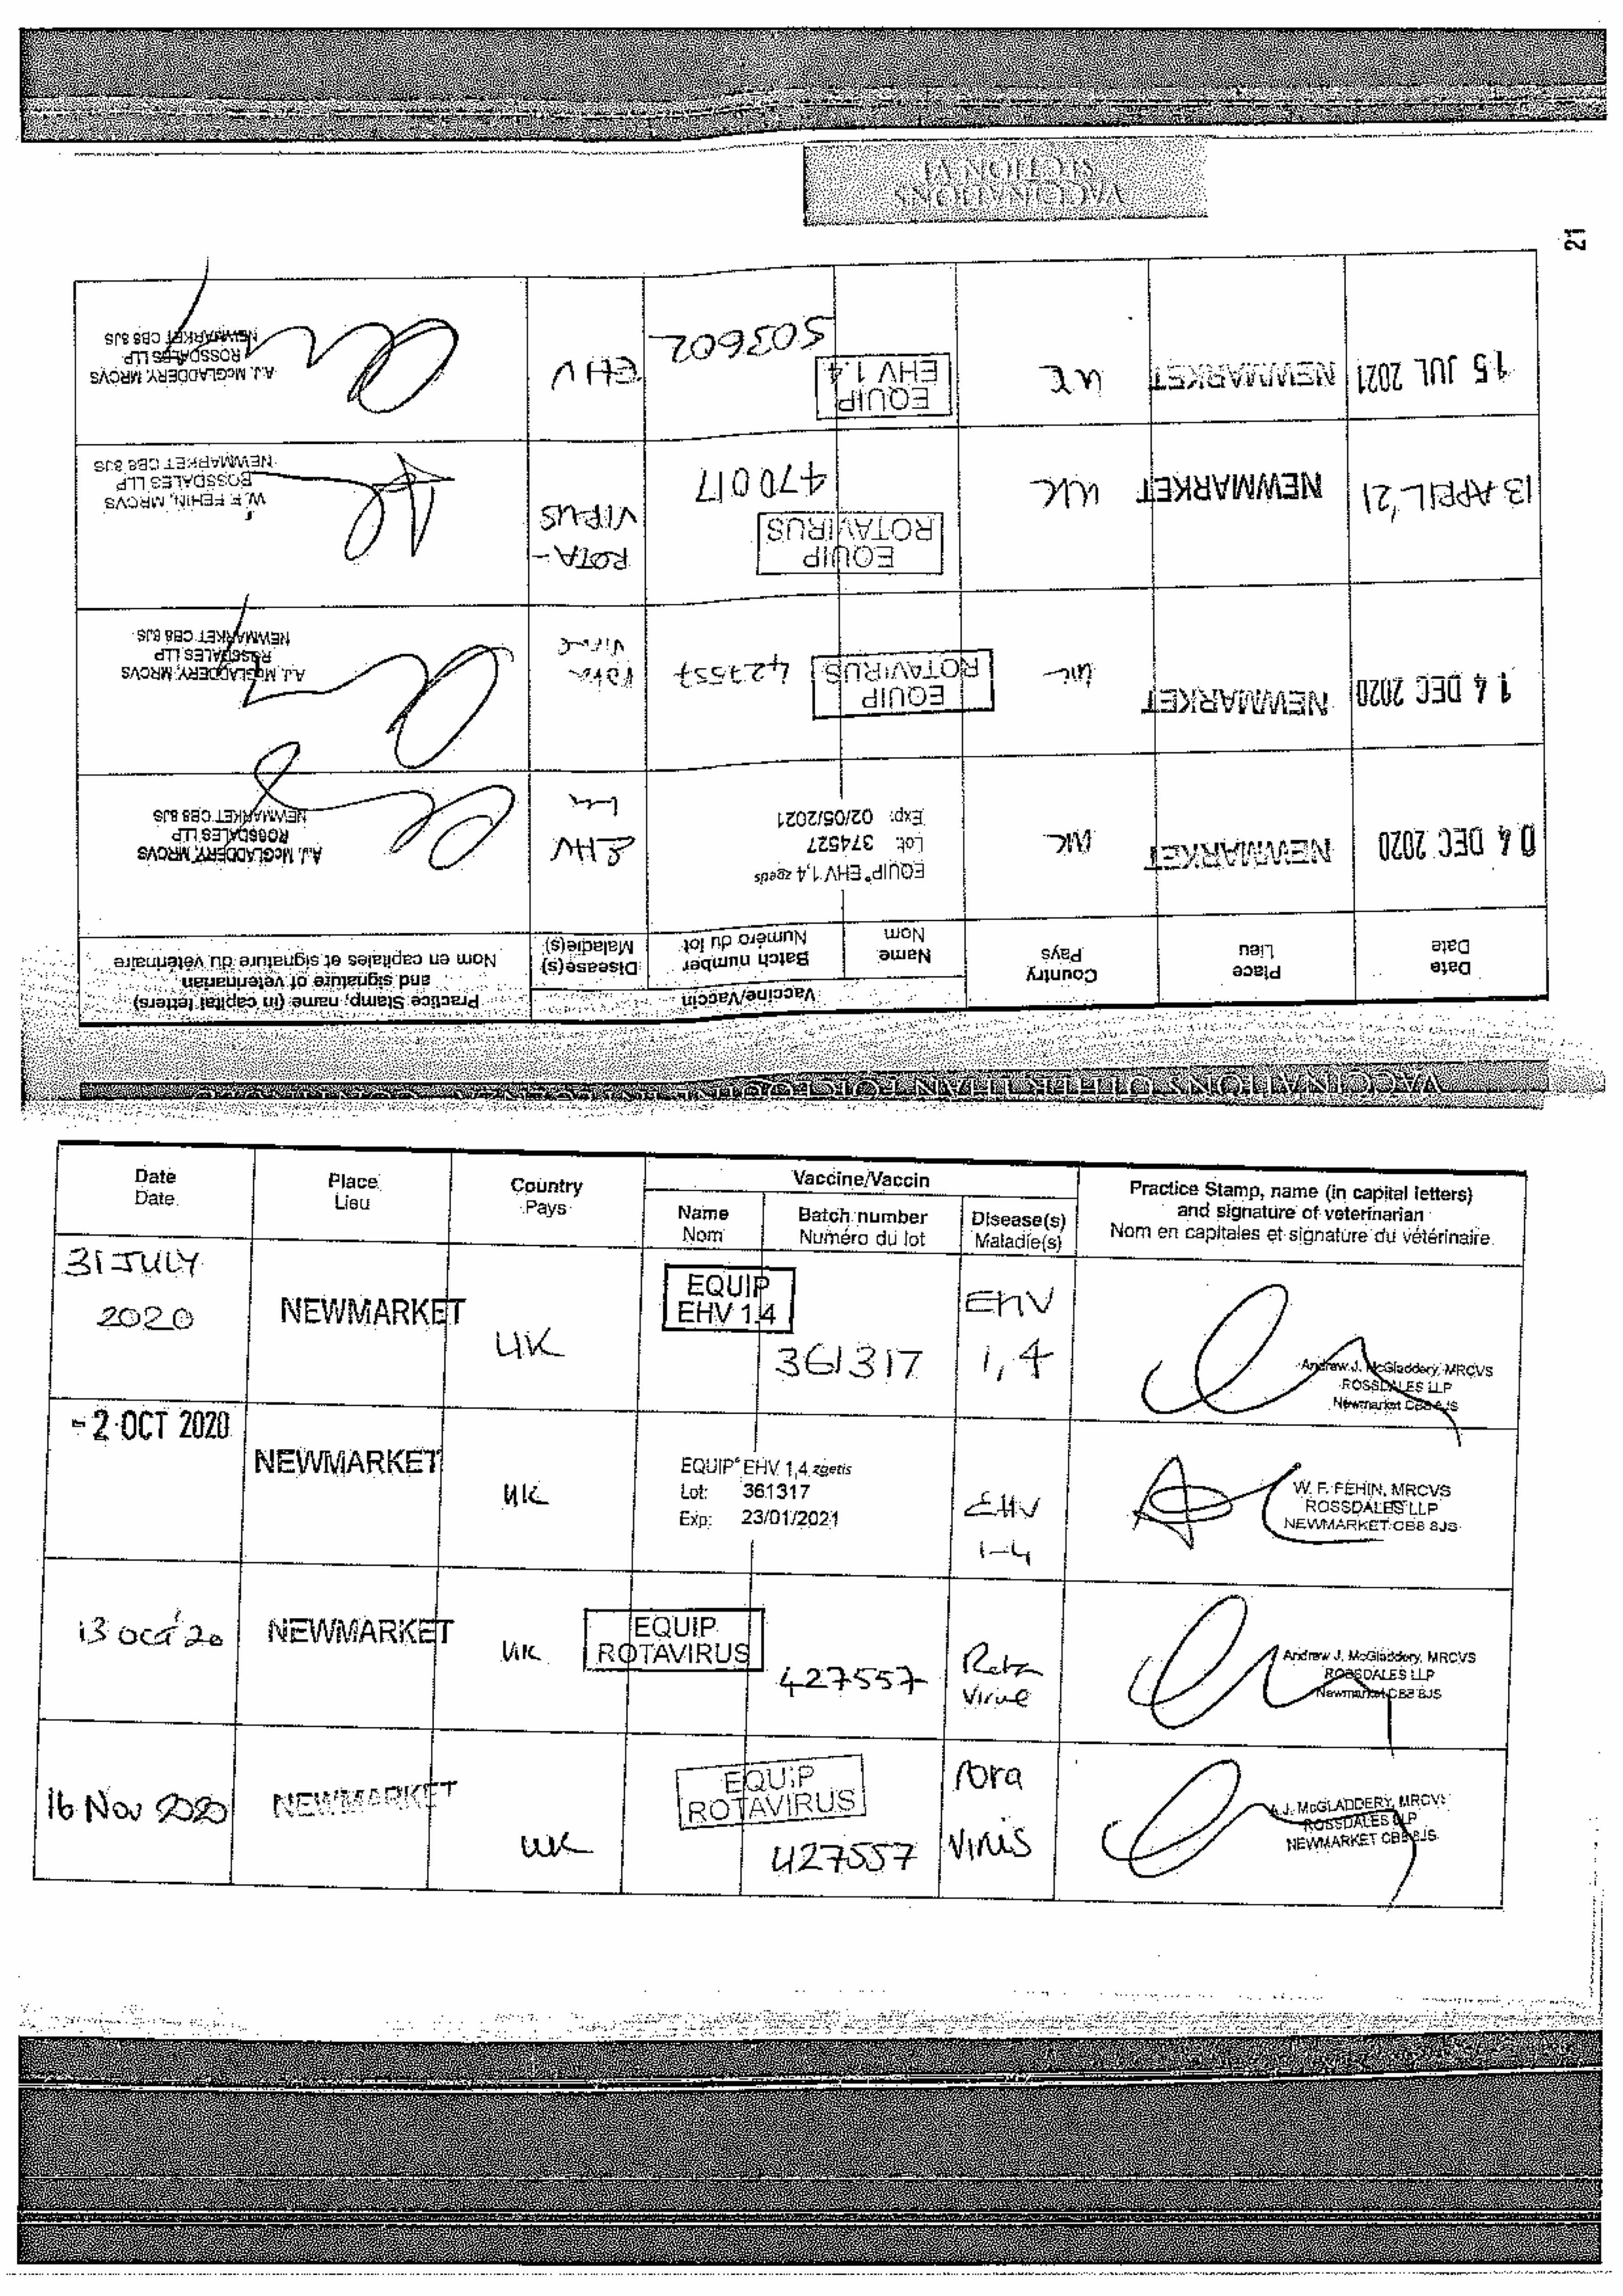 VACCINATIONS
SECTION VI
21
VACCINATIONS OTHER THAN
Date
Date
Place
Lieu
Country
Pays
Vaccine/Vaccin
Name
Nom
Batch number
Numéro du lot
Disease(s)
Maladie(s)
Practice Stamp, name (in capital letters)
and signature of veterinarian
Nom en capitales et signature du vétérinaire
04 DEC 2020
NEWMARKET
UK
EQUIP® EHV 1,4 zoetis
Lot: 374527
Exp: 02/05/2021
EHV
A.J. McGLADDERY, MRCVS
ROSSDALES LLP
NEWMARKET CB8 8JS
14 DEC 2020
NEWMARKET
UK
EQUIP
ROTAVIRUS
427557
Rota
Virus
A.J. McGLADDERY, MRCVS
ROSSDALES LLP
NEWMARKET CB8 8JS
13 APRIL '21
NEWMARKET
UK
EQUIP
ROTAVIRUS
470017
ROTA-
VIRUS
W. F. FEHIN, MRCVS
ROSSDALES LLP
NEWMARKET CB8 8JS
15 JUL 2021
NEWMARKET
UK
EQUIP
EHV 1.4
503602
EHV
A.J. McGLADDERY, MRCVS
ROSSDALES LLP
NEWMARKET CB8 8JS
Date
Date
Place
Lieu
Country
Pays
Vaccine/Vaccin
Name
Nom
Batch number
Numéro du lot
Disease(s)
Maladie(s)
Practice Stamp, name (in capital letters)
and signature of veterinarian
Nom en capitales et signature du vétérinaire
31 JULY
2020
NEWMARKET
UK
EQUIP
EHV 1.4
361317
EHV
1,4
Andrew J. McGladdery, MRCVS
ROSSDALES LLP
Newmarket CB8 8JS
-2 OCT 2020
NEWMARKET
UK
EQUIP® EHV 1,4 zoetis
Lot: 361317
Exp: 23/01/2021
EHV
1-4
W. F. FEHIN, MRCVS
ROSSDALES LLP
NEWMARKET CB8 8JS
13 Oct 20
NEWMARKET
UK
EQUIP
ROTAVIRUS
427557
Rota
Virus
Andrew J. McGladdery, MRCVS
ROSSDALES LLP
Newmarket CB8 8JS
16 Nov 2020
NEWMARKET
UK
EQUIP
ROTAVIRUS
427557
Rota
Virus
A.J. McGLADDERY, MRCVS
ROSSDALES LLP
NEWMARKET CB8 8JS